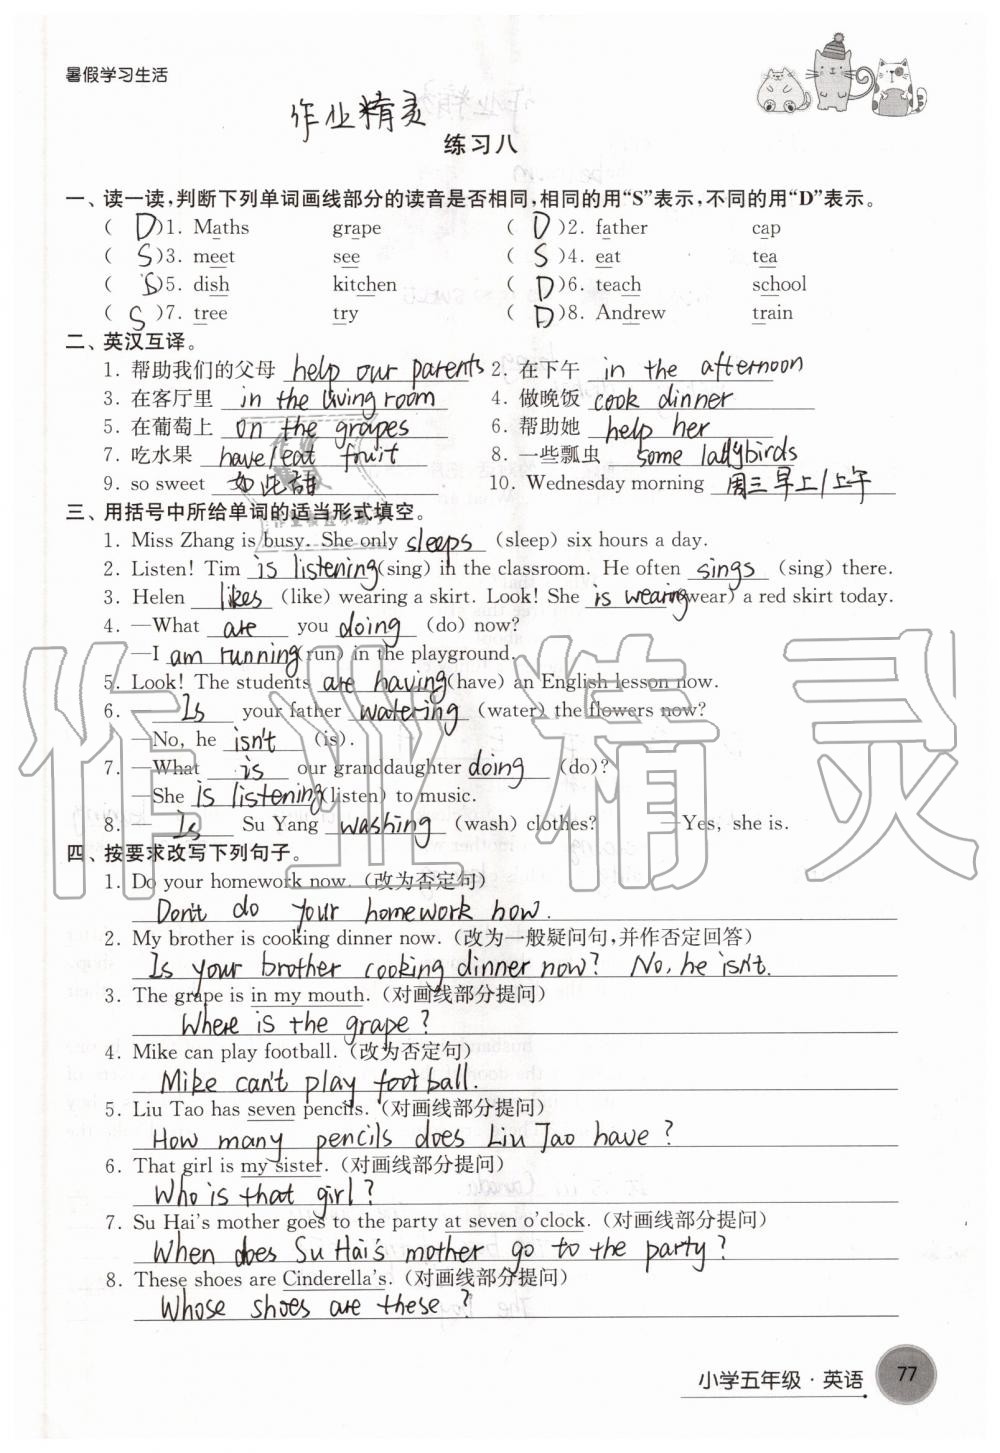 暑假学习生活
作业精灵
练习八
一、读一读,判断下列单词画线部分的读音是否相同,相同的用“S”表示,不同的用“D”表示。
( D )1. Maths grape ( D )2. father cap
( S )3. meet see ( S )4. eat tea
( S )5. dish kitchen ( D )6. teach school
( S )7. tree try ( D )8. Andrew train
二、英汉互译。
1. 帮助我们的父母 help our parents 2. 在下午 in the afternoon
3. 在客厅里 in the living room 4. 做晚饭 cook dinner
5. 在葡萄上 on the grapes 6. 帮助她 help her
7. 吃水果 have/eat fruit 8. 一些瓢虫 some ladybirds
9. so sweet 如此甜 10. Wednesday morning 周三早上/上午
三、用括号中所给单词的适当形式填空。
1. Miss Zhang is busy. She only sleeps (sleep) six hours a day.
2. Listen! Tim is listening (sing) in the classroom. He often sings (sing) there.
3. Helen likes (like) wearing a skirt. Look! She is wearing (wear) a red skirt today.
4. —What are you doing (do) now?
—I am running (run) in the playground.
5. Look! The students are having (have) an English lesson now.
6. — Is your father watering (water) the flowers now?
—No, he isn't (is).
7. —What is our granddaughter doing (do)?
—She is listening (listen) to music.
8. — Is Su Yang washing (wash) clothes? —Yes, she is.
四、按要求改写下列句子。
1. Do your homework now. (改为否定句)
Don't do your homework now.
2. My brother is cooking dinner now. (改为一般疑问句,并作否定回答)
Is your brother cooking dinner now? No, he isn't.
3. The grape is in my mouth. (对画线部分提问)
Where is the grape?
4. Mike can play football. (改为否定句)
Mike can't play football.
5. Liu Tao has seven pencils. (对画线部分提问)
How many pencils does Liu Tao have?
6. That girl is my sister. (对画线部分提问)
Who is that girl?
7. Su Hai's mother goes to the party at seven o'clock. (对画线部分提问)
When does Su Hai's mother go to the party?
8. These shoes are Cinderella's. (对画线部分提问)
Whose shoes are these?
小学五年级·英语 77
作业精灵